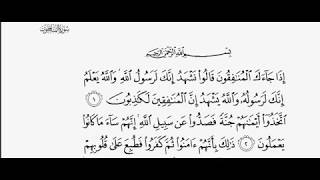 سورة المنافقون
بِسْمِ ٱللَّهِ ٱلرَّحْمَٰنِ ٱلرَّحِيمِ
إِذَا جَآءَكَ ٱلْمُنَٰفِقُونَ قَالُوا۟ نَشْهَدُ إِنَّكَ لَرَسُولُ ٱللَّهِ وَٱللَّهُ يَعْلَمُ
إِنَّكَ لَرَسُولُهُۥ وَٱللَّهُ يَشْهَدُ إِنَّ ٱلْمُنَٰفِقِينَ لَكَٰذِبُونَ ١
ٱتَّخَذُوٓا۟ أَيْمَٰنَهُمْ جُنَّةً فَصَدُّوا۟ عَن سَبِيلِ ٱللَّهِ إِنَّهُمْ سَآءَ مَا كَانُوا۟
يَعْمَلُونَ ٢ ذَٰلِكَ بِأَنَّهُمْ ءَامَنُوا۟ ثُمَّ كَفَرُوا۟ فَطُبِعَ عَلَىٰ قُلُوبِهِمْ